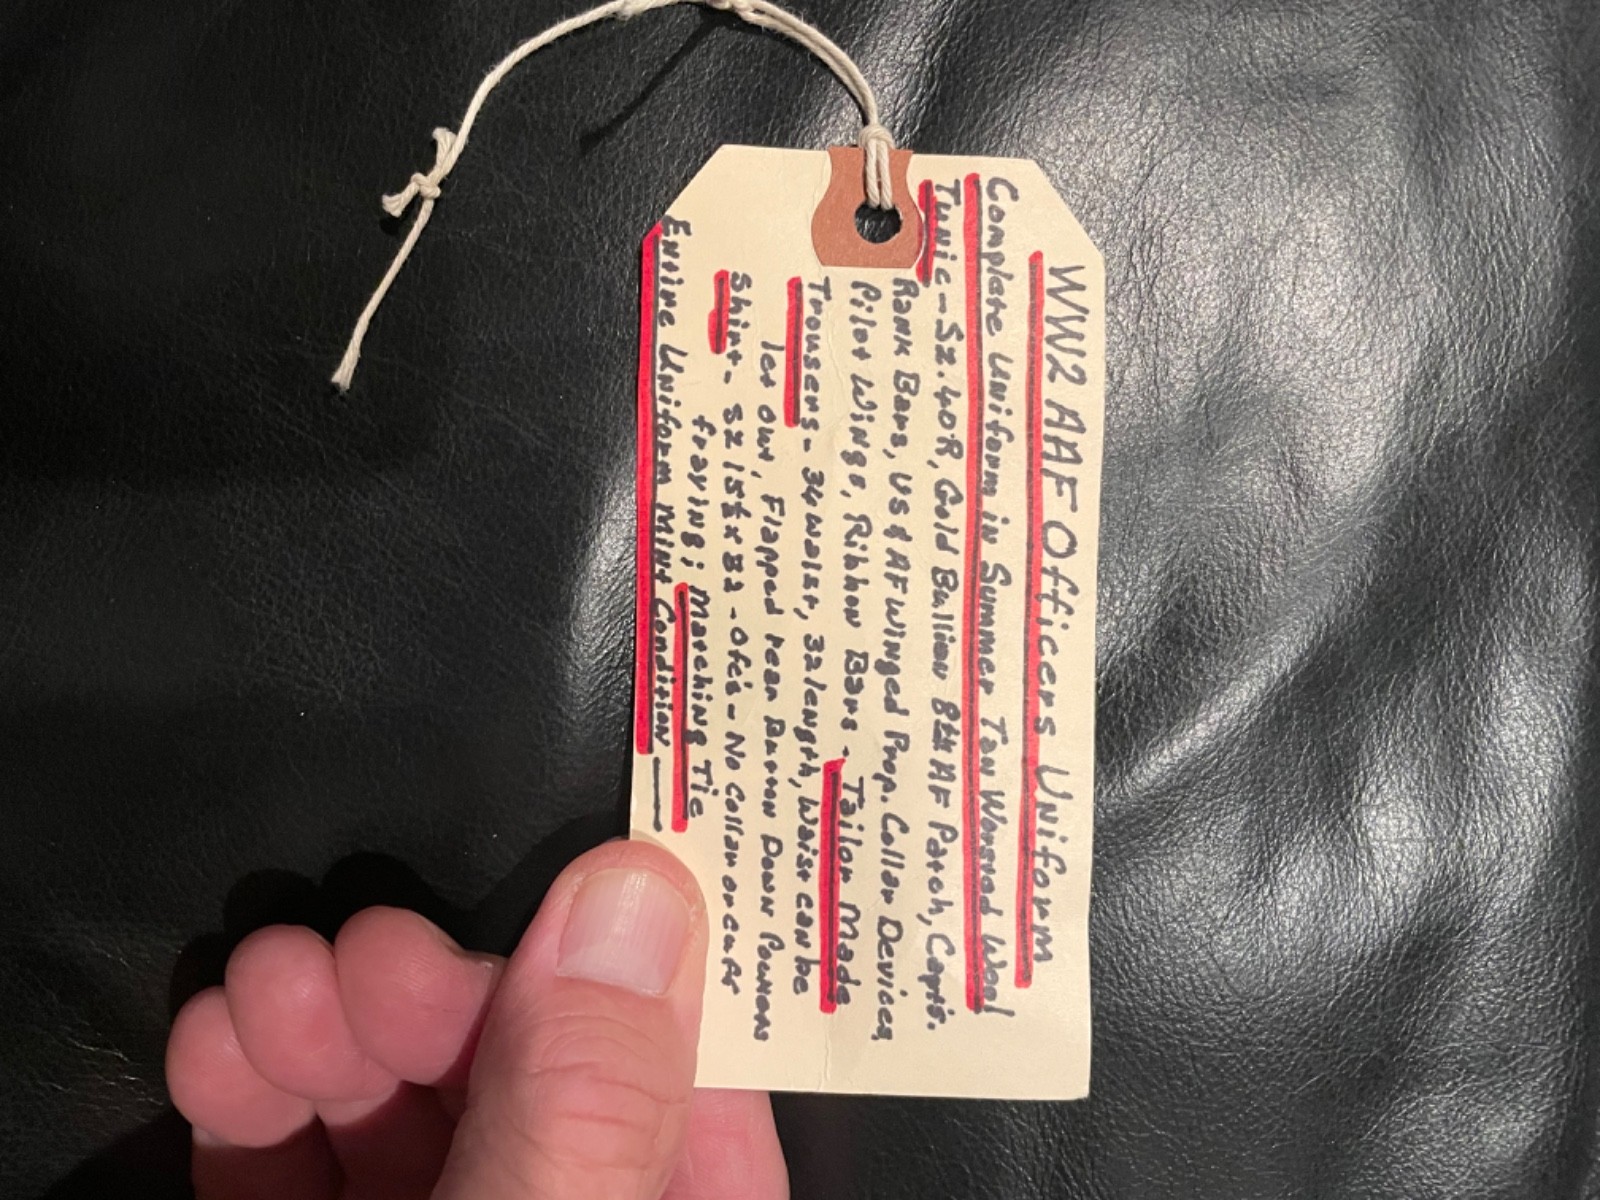 WW2 AAF Officers Uniform
Complete Uniform in Summer Tan Worsted Wool
Tunic - Sz. 40R, Gold Bullion 8th AF Patch, Capt's.
Rank Bars, US & AF Winged Prop. Collar Devices,
Pilot Wings, Ribbon Bars - Tailor Made
Trousers - 34 waist, 32 length, Waist can be
let out, Flapped rear Button Down Pockets
Shirt - Sz 15½ x 32 - Ofc's - No Collar or cuff
fraying; Matching Tie
Entire Uniform Mint Condition